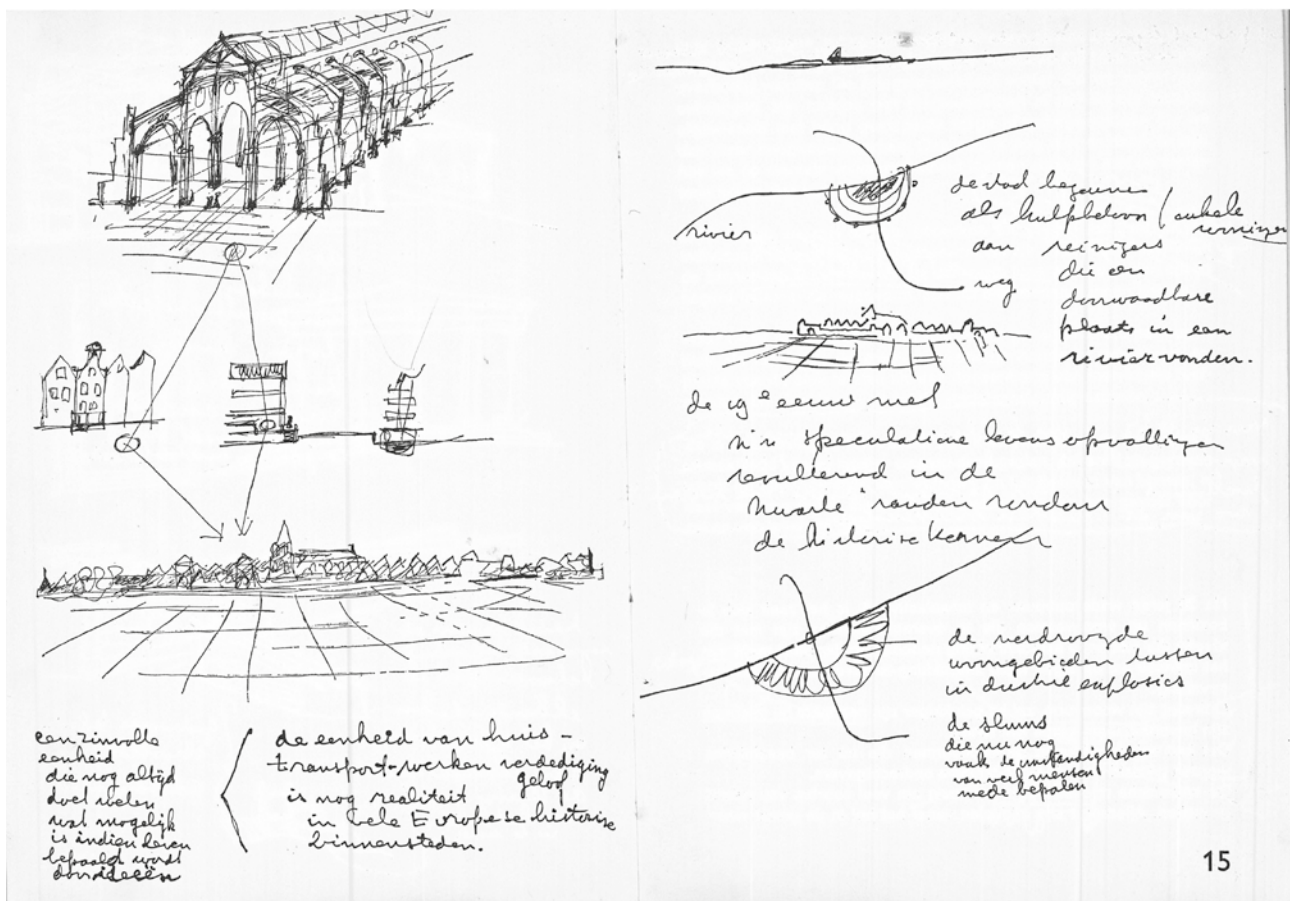 een zinvolle
eenheid
die nog altijd
doet weten
wat mogelijk
is indien leven
bepaald wordt
door ideeën
de eenheid van huis -
transport - werken verdediging
geloof
is nog realiteit
in vele Europese historise
binnensteden.
rivier
weg
de stad begonnen
als hulpbetoon / enkele
woningen
aan reizigers
die een
doorwaadbare
plaats in een
rivier vonden.
de 19e eeuw met
z'n speculatieve levensopvattingen
resulterend in de
"zwarte" randen rondom
de historise kernen
de verdroogde
woongebieden tussen
industriële explosies
de slums
die nu nog
vaak de omstandigheden
van veel mensen
mede bepalen
15